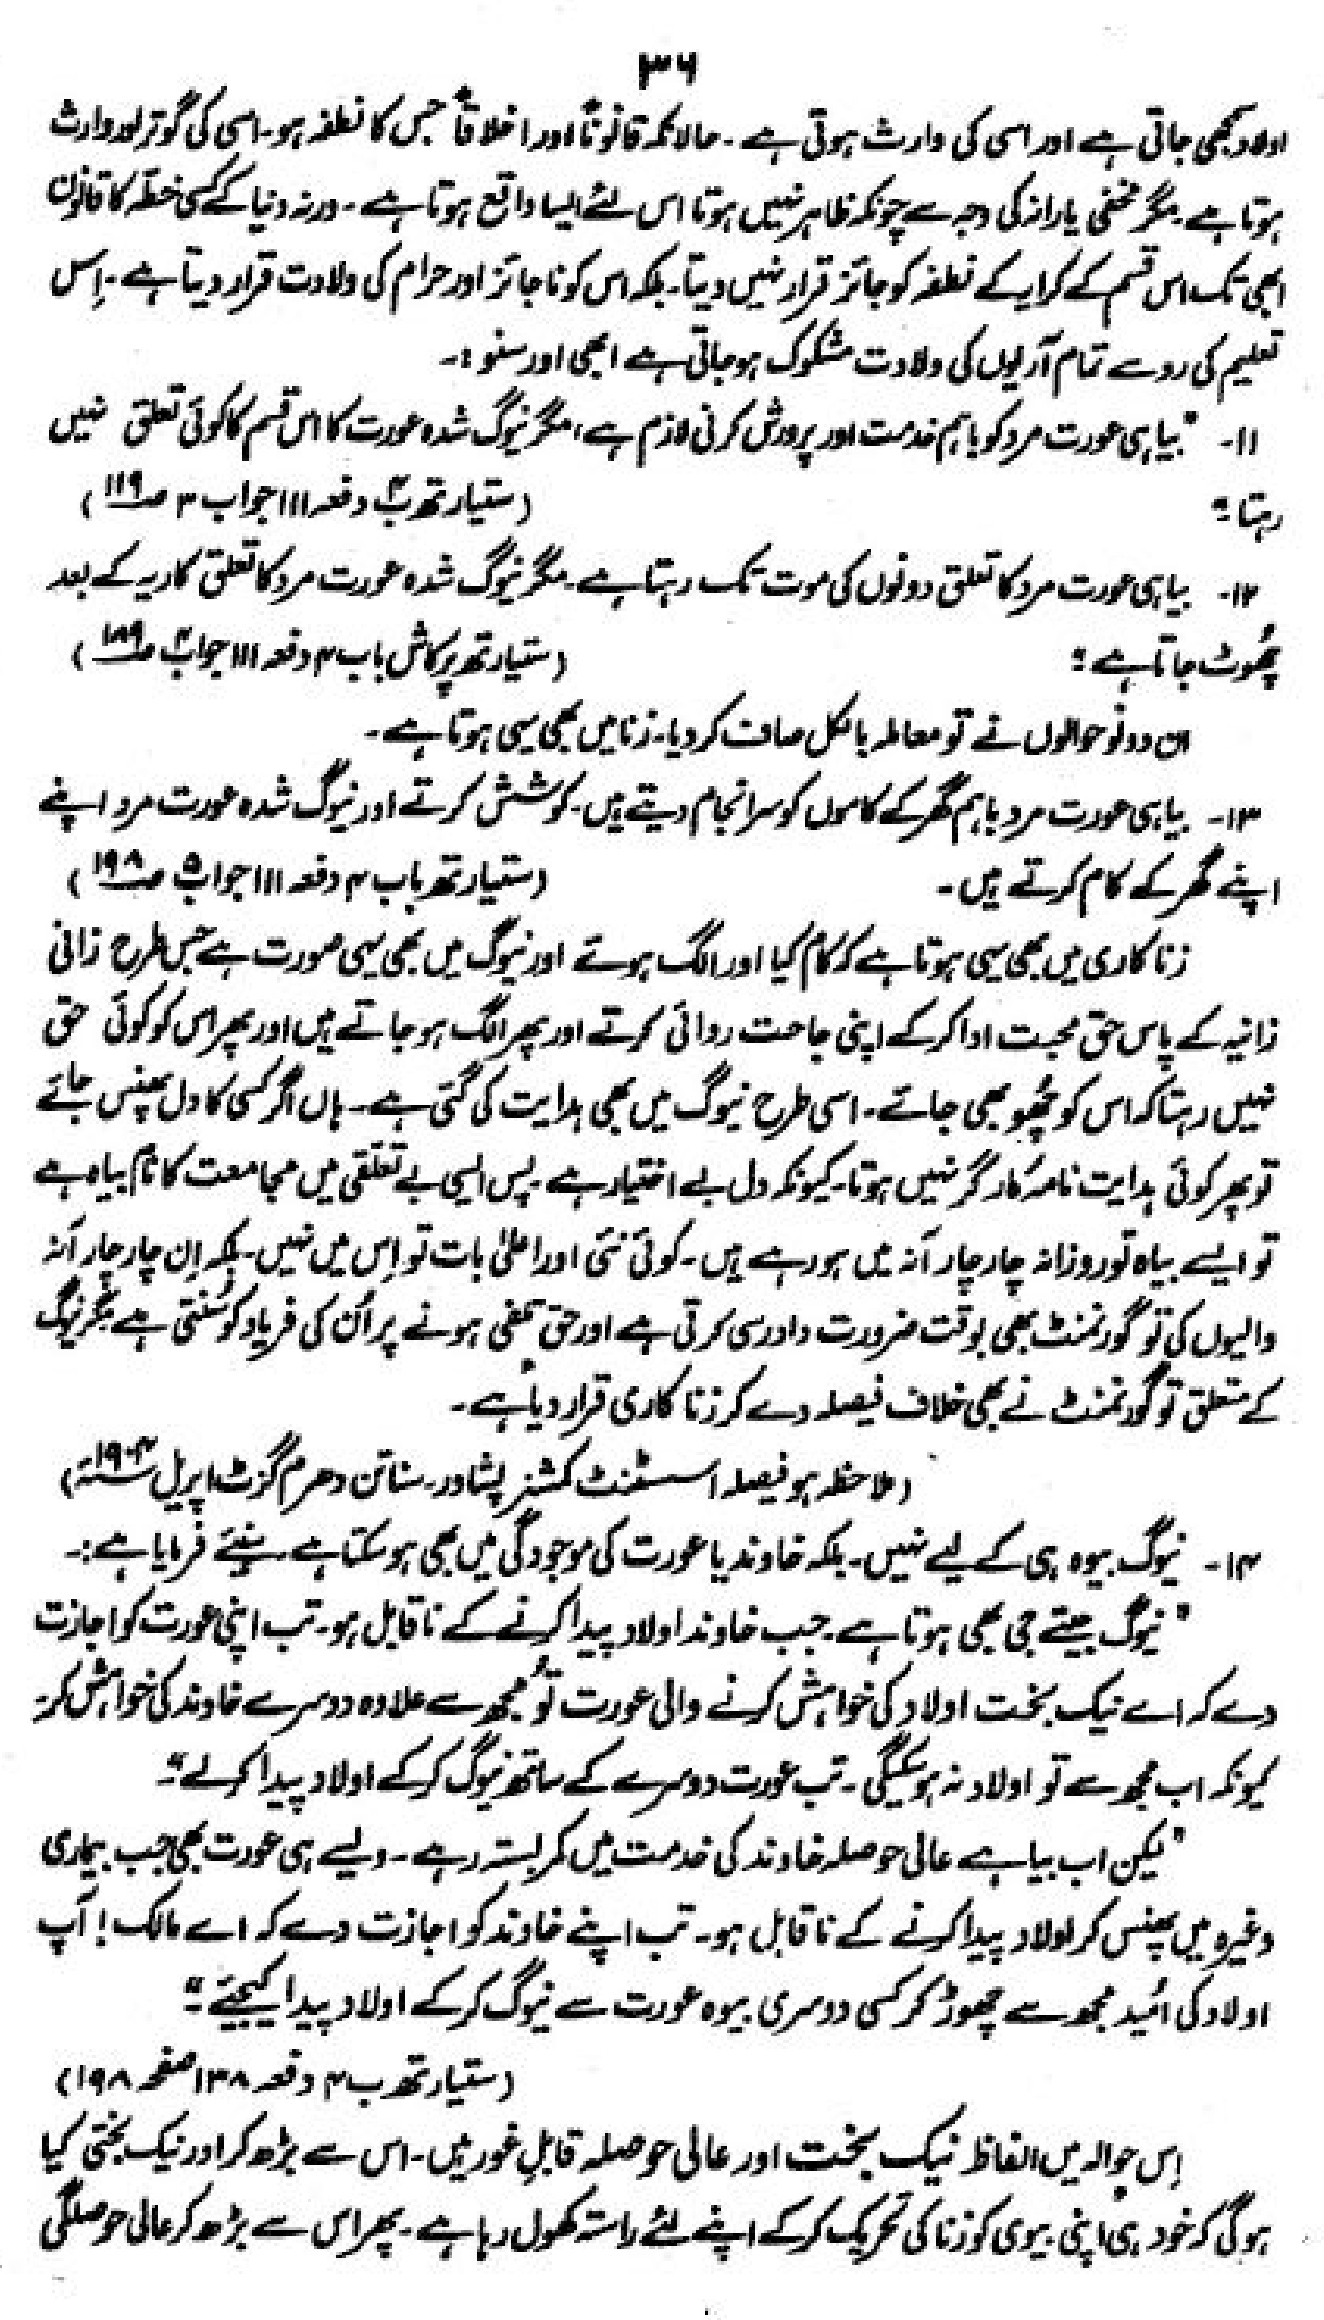 ۳۶
اولاد سمجھی جاتی ہے اور اسی کی وارث ہوتی ہے۔ حالانکہ قانوناً اور اخلاقاً جس کا نطفہ ہو۔ اسی کی گوتر اور وارث
ہوتا ہے۔ مگر مخفی یارانہ کی وجہ سے چونکہ ظاہر نہیں ہوتا اس لئے ایسا واقع ہوتا ہے۔ ورنہ دنیا کے کسی خطّہ کا قانون
ابھی تک اس قسم کے کرایہ کے نطفہ کو جائز قرار نہیں دیتا۔ بلکہ اس کو ناجائز اور حرام کی ولادت قرار دیتا ہے۔ اِس
تعلیم کی رو سے تمام آریوں کی ولادت مشکوک ہو جاتی ہے ابھی اور سنو:۔
۱۱۔ "بیاہی عورت مرد کو باہم خدمت اور پرورش کرنی لازم ہے، مگر نیوگ شدہ عورت کا اس قسم کا کوئی تعلق نہیں
رہتا۔" (ستیارتھ ب۴ دفعہ ۱۱۱ جواب ۳ صـ۱۱۹)
۱۲۔ بیاہی عورت مرد کا تعلق دونوں کی موت تک رہتا ہے۔ مگر نیوگ شدہ عورت مرد کا تعلق کاریہ کے بعد
چُھوٹ جاتا ہے۔" (ستیارتھ پرکاش باب ۴ دفعہ ۱۱۱ جواب۴ صـ۱۸۹)
ان دونو حوالوں نے تو معاملہ بالکل صاف کر دیا۔ زنا میں بھی یہی ہوتا ہے۔
۱۳۔ بیاہی عورت مرد باہم گھر کے کاموں کو سرانجام دیتے ہیں۔ کوشش کرتے اور نیوگ شدہ عورت مرد اپنے
اپنے گھر کے کام کرتے ہیں۔ (ستیارتھ باب ۴ دفعہ ۱۱۱ جواب ۵ صـ۱۹۸)
زنا کاری میں بھی یہی ہوتا ہے کہ کام کیا اور الگ ہوئے اور نیوگ میں بھی یہی صورت ہے جس طرح زانی
زانیہ کے پاس حق محبت ادا کر کے اپنی حاجت روائی کرتے اور پھر الگ ہو جاتے ہیں اور پھر اس کو کوئی حق
نہیں رہتا کہ اس کو چُھو بھی جائے۔ اسی طرح نیوگ میں بھی ہدایت کی گئی ہے۔ ہاں اگر کسی کا دل پھنس جائے
تو پھر کوئی ہدایت نامہ کارگر نہیں ہوتا۔ کیونکہ دل بے اختیار ہے۔ پس ایسی بے تعلقی میں مجامعت کا نام بیاہ ہے
تو ایسے بیاہ تو روزانہ چار چار آنہ میں ہو رہے ہیں۔ کوئی نئی اور اعلیٰ بات تو اِس میں نہیں۔ بلکہ اِن چار چار آنہ
والیوں کی تو گورنمنٹ بھی بوقت ضرورت دادرسی کرتی ہے اور حق تلفی ہونے پر اُن کی فریاد کو سُنتی ہے مگر نیوگ
کے متعلق تو گورنمنٹ نے بھی خلاف فیصلہ دے کر زنا کاری قرار دیا ہے۔
(ملاحظہ ہو فیصلہ اسسٹنٹ کمشنر پشاور۔ سناتن دھرم گزٹ اپریل ۱۹۰۴ء)
۱۴۔ نیوگ بیوہ ہی کے لیے نہیں۔ بلکہ خاوند یا عورت کی موجودگی میں بھی ہو سکتا ہے۔ سنیئے فرمایا ہے:۔
"نیوگ جیتے جی بھی ہوتا ہے۔ جب خاوند اولاد پیدا کرنے کے ناقابل ہو۔ تب اپنی عورت کو اجازت
دے کہ اے نیک بخت اولاد کی خواہش کرنے والی عورت تُو مجھ سے علاوہ دوسرے خاوند کی خواہش کر۔
کیونکہ اب مجھ سے تو اولاد نہ ہو سکیگی۔ تب عورت دوسرے کے ساتھ نیوگ کر کے اولاد پیدا کر لے"۔
"لیکن اب بیاہے عالی حوصلہ خاوند کی خدمت میں کمر بستہ رہے۔ ویسے ہی عورت بھی جب بیماری
وغیرہ میں پھنس کر اولاد پیدا کرنے کے ناقابل ہو۔ تب اپنے خاوند کو اجازت دے کہ اے مالک! آپ
اولاد کی اُمید مجھ سے چھوڑ کر کسی دوسری بیوہ عورت سے نیوگ کر کے اولاد پیدا کیجئیے۔"
(ستیارتھ ب ۴ دفعہ ۱۳۸ صفحہ ۱۹۸)
اِس حوالہ میں الفاظ نیک بخت اور عالی حوصلہ قابلِ غور ہیں۔ اس سے بڑھ کر اور نیک بختی کیا
ہوگی کہ خود ہی اپنی بیوی کو زنا کی تحریک کر کے اپنے لئے راستہ کھول رہا ہے۔ پھر اس سے بڑھ کر عالی حوصلگی